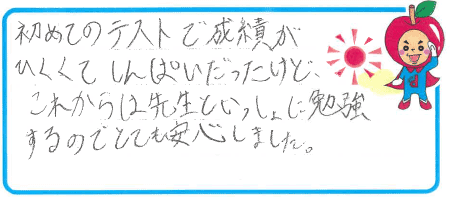 初めてのテストで成績が
ひくくてしんぱいだったけど、
これからは先生といっしょに勉強
するのでとても安心しました。